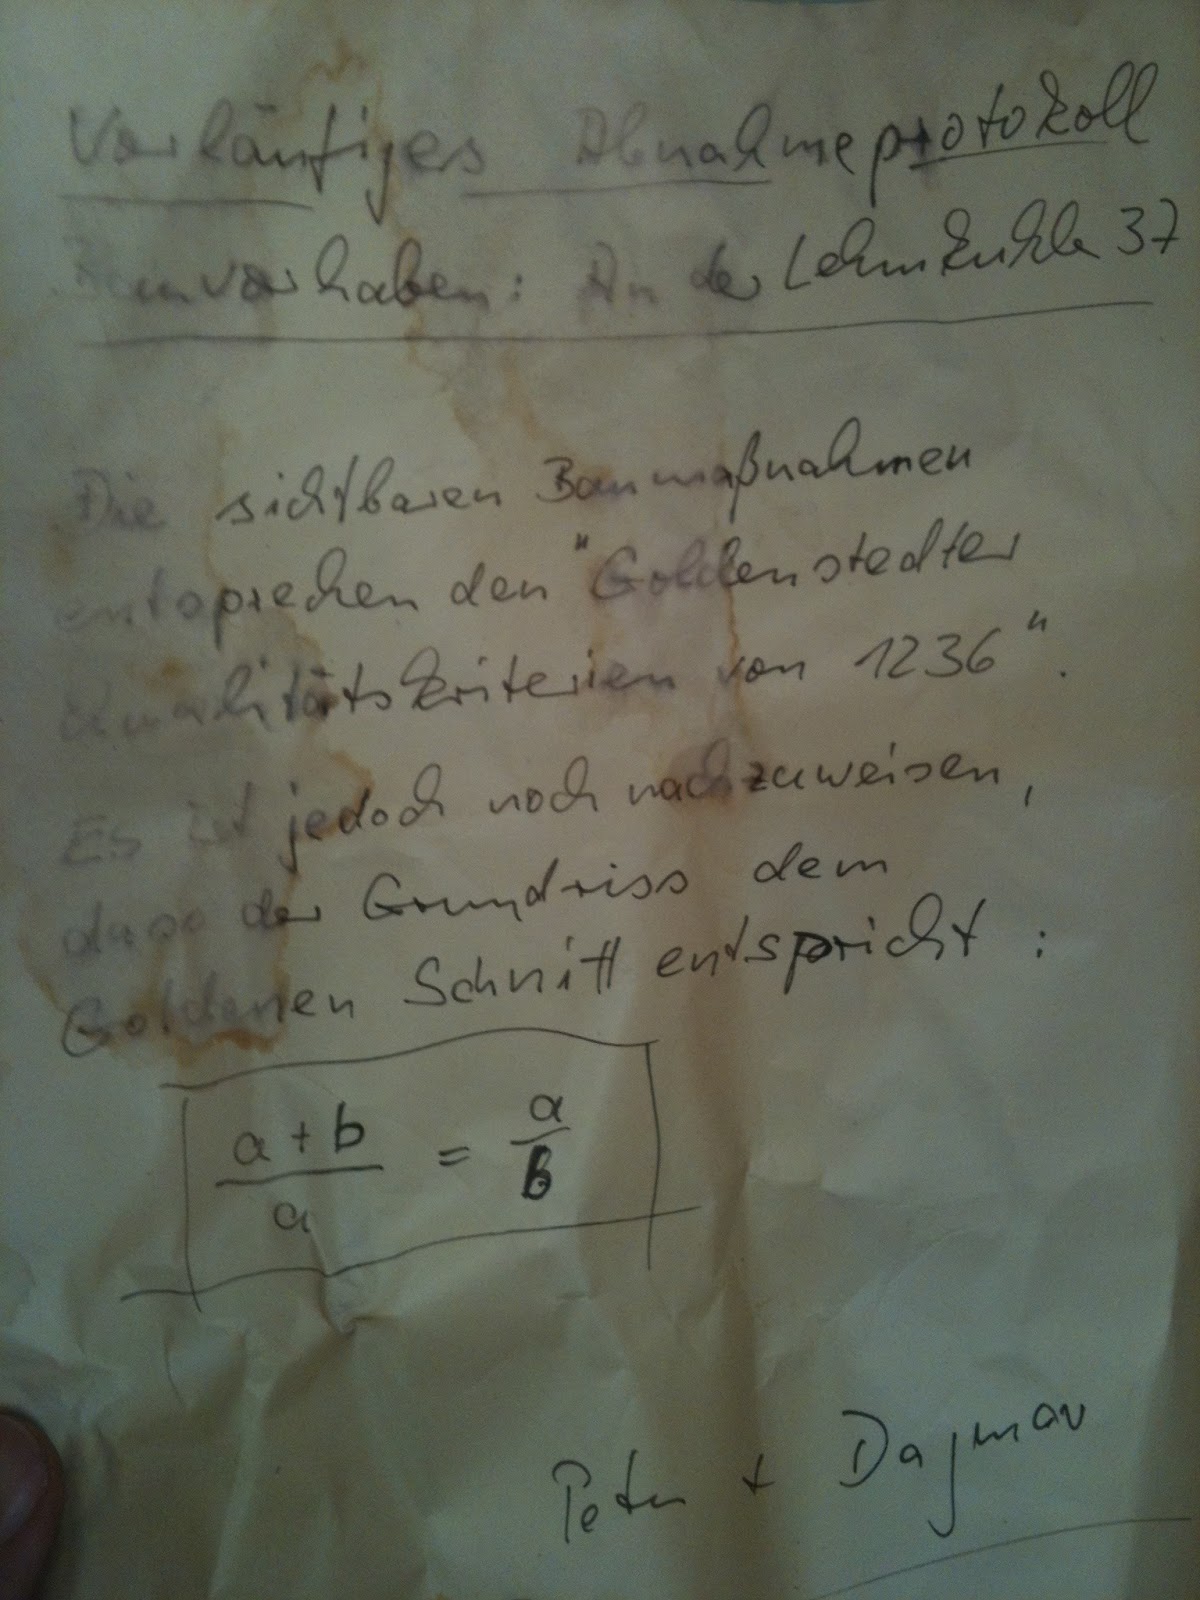 Vorläufiges Abnahmeprotokoll
Bauvorhaben: An der Lehmkuhle 37
Die sichtbaren Baumaßnahmen
entsprechen den "Goldenstedter
Qualitätskriterien von 1236".
Es ist jedoch noch nachzuweisen,
dass der Grundriss dem
Goldenen Schnitt entspricht:
a + b / a = a / b
Peter + Dagmar